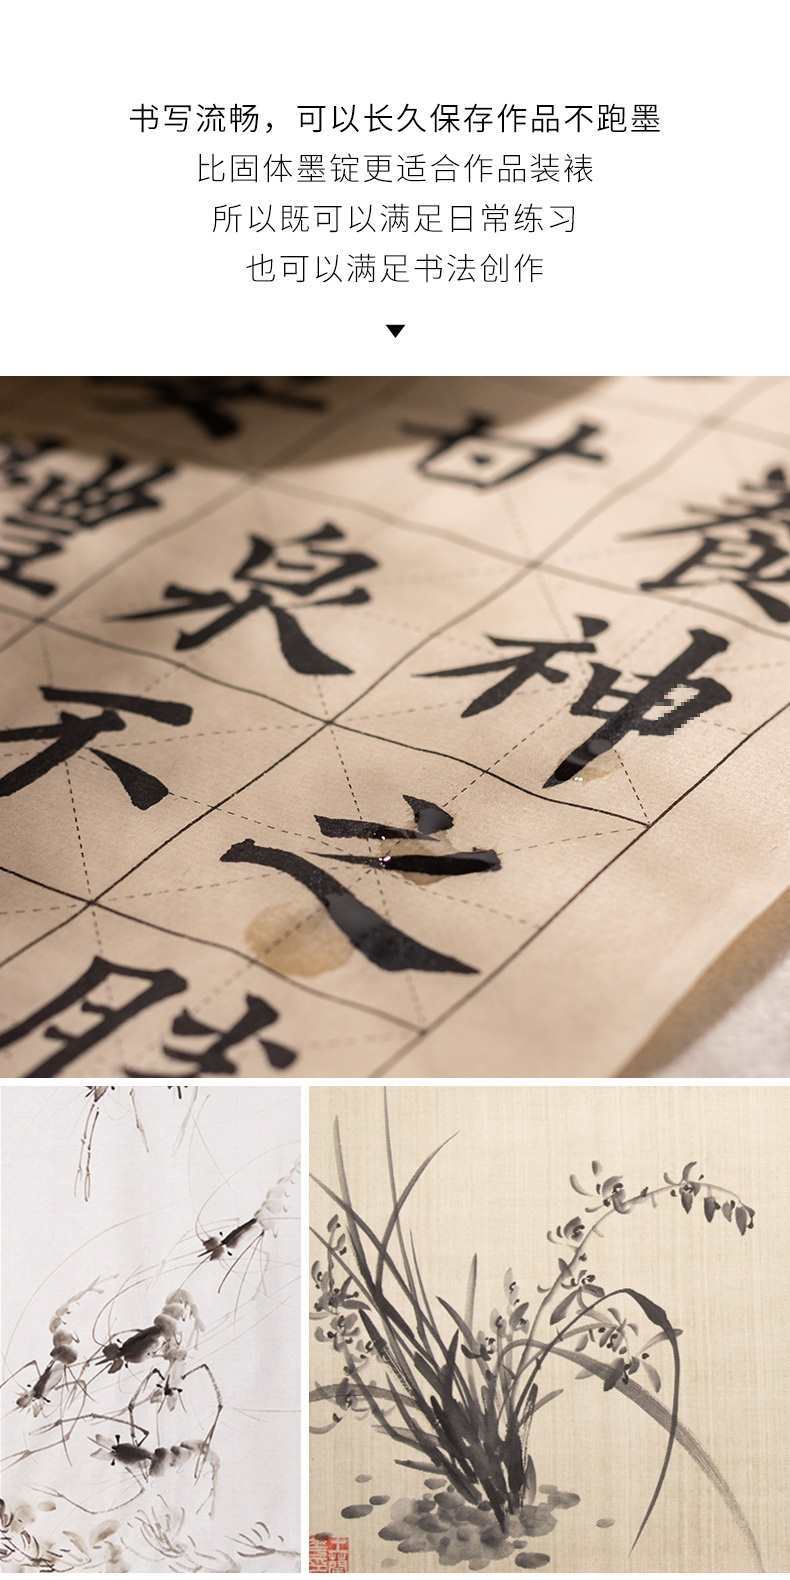 书写流畅，可以长久保存作品不跑墨
比固体墨锭更适合作品装裱
所以既可以满足日常练习
也可以满足书法创作
甘
養
泉
神
天
之